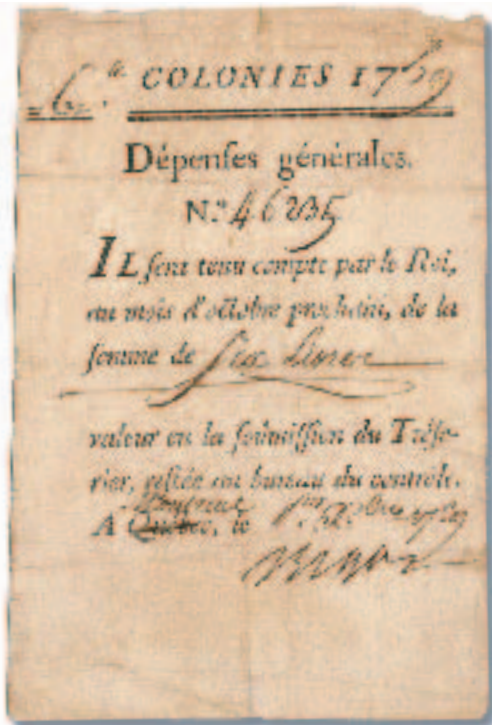 6.tt COLONIES 1759
Dépenſes générales.
N.º 46235
IL ſera tenu compte par le Roi,
au mois d'octobre prochain, de la
ſomme de ſix Livres
valeur en la ſoûmiſſion du Tréſo-
rier, reſtée au bureau du contrôle.
A Québec, le